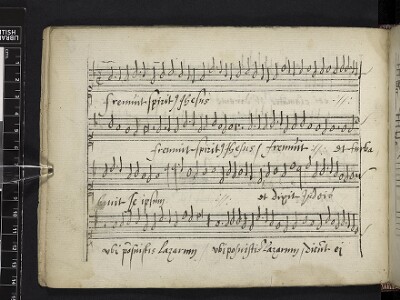 fremuit spirit Jhesus
fremuit spirit Jhesus / fremuit et turba
bauit se ipsum et dixit Judeis
ubi posuistis lazarum / ubi posuistis lazarum / dicunt ei